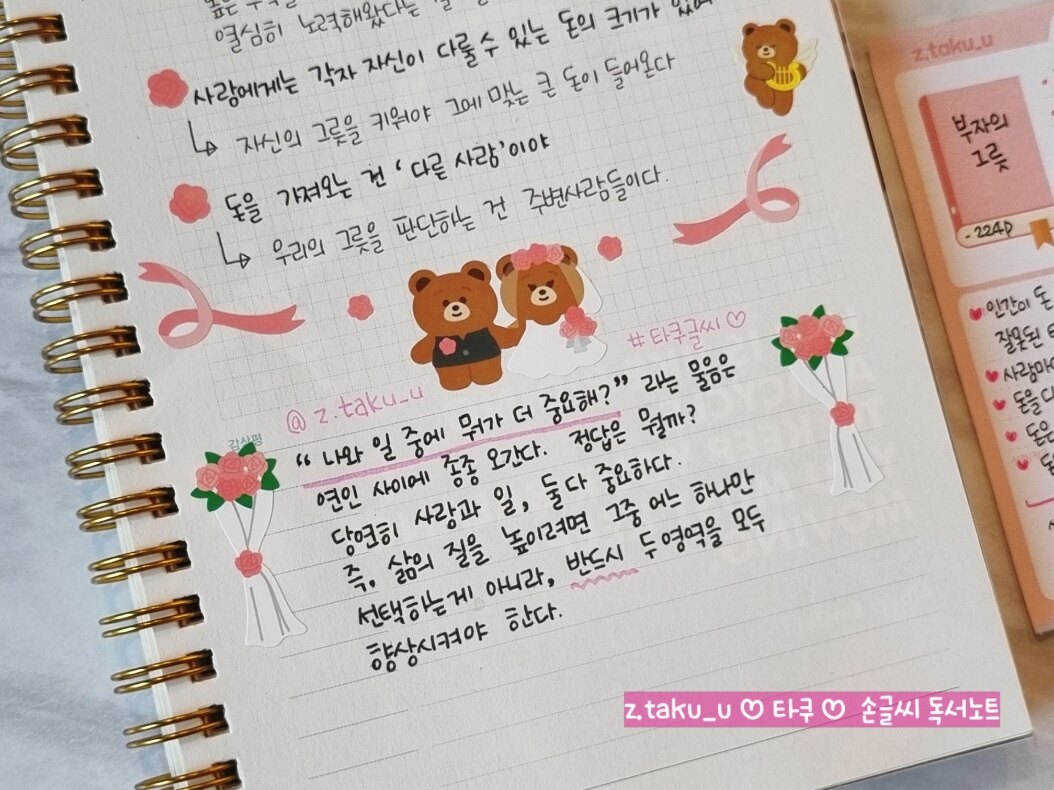 열심히 노력해왔다는
사람에게는 각자 자신이 다룰 수 있는 돈의 크기가 있어
↳ 자신의 그릇을 키워야 그에 맞는 큰 돈이 들어온다
돈을 가져오는 건 '다른 사람'이야
↳ 우리의 그릇을 판단하는 건 주변사람들이다.
#타쿠글씨♡
@z.taku_u
감상평
“나와 일 중에 뭐가 더 중요해?” 라는 물음은
연인 사이에 종종 오간다. 정답은 뭘까?
당연히 사랑과 일, 둘다 중요하다.
즉, 삶의 질을 높이려면 그중 어느 하나만
선택하는게 아니라, 반드시 두영역을 모두
향상시켜야 한다.
z.taku_u
부자의
그릇
-224p
인간이 돈
잘못된
사람마
돈을 다
돈은
z.taku_u ♡ 타쿠 ♡ 손글씨 독서노트